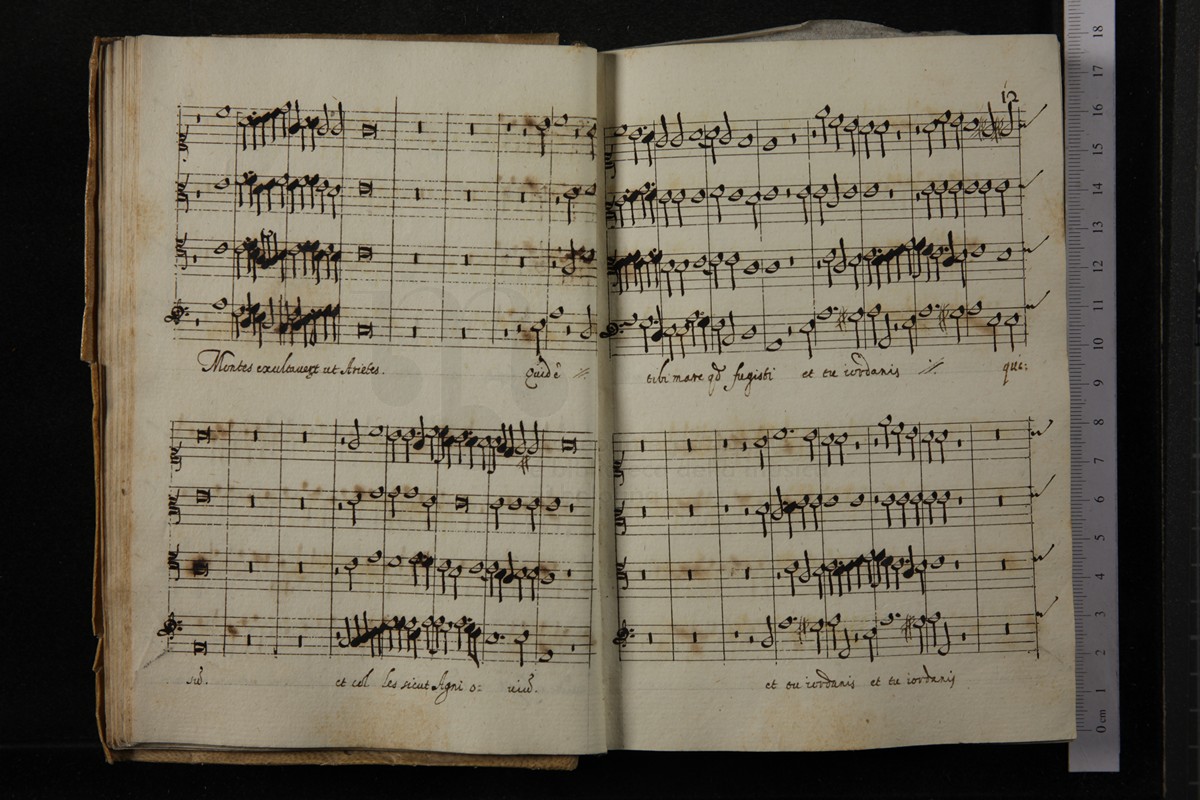 12
Montes exultavert ut Arietes. Quid ē //.
tibi mare qđ fugisti et tu iordanis //. qui:
et col les sicut Agni o: viū.
et tu iordanis et tu iordanis
18
17
16
15
14
13
12
11
10
9
8
7
6
5
4
3
2
1
0 cm